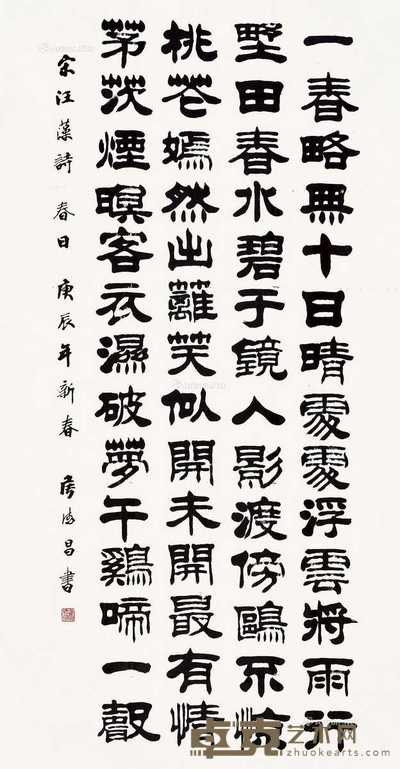 一春略無十日晴處處浮雲將雨行
墅田春水碧于鏡人影渡傍鷗不惊
桃花嫣然出籬笑似開未開最有情
茅茨煙暝客衣濕破夢午鷄啼一聲
宋汪藻詩 春日 庚辰年新春 侯德昌書
卓克艺术网
www.zhuokearts.com